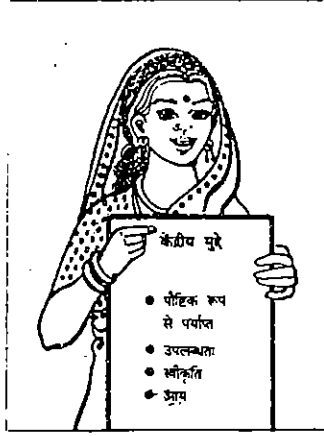 केंद्रीय मुद्दे
• पौष्टिक रूप
से पर्याप्त
• उपलब्धता
• स्वीकृति
• आय